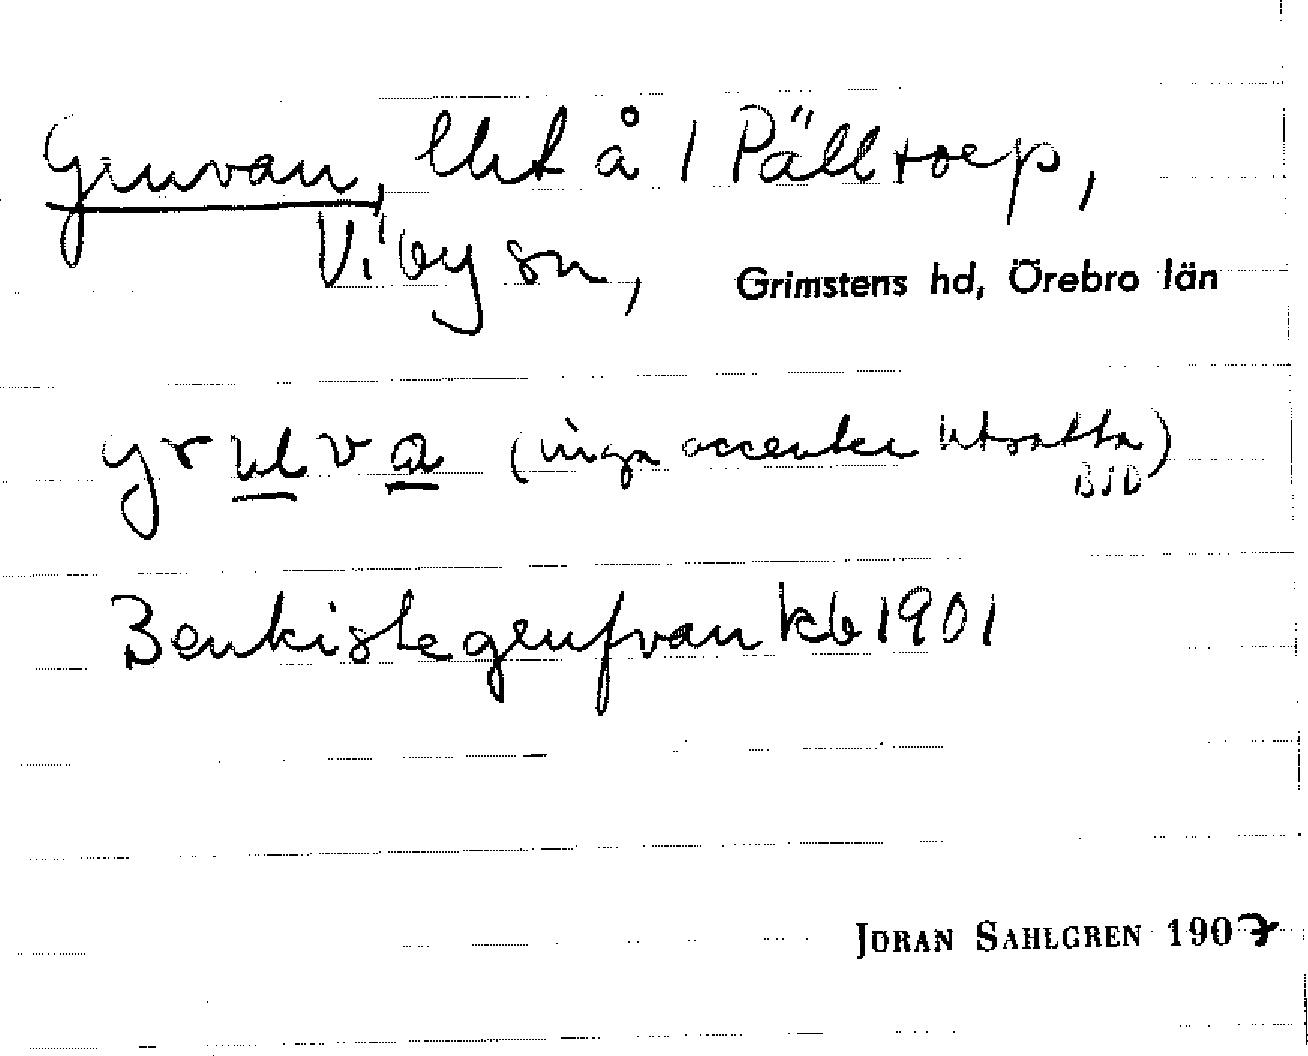 Gruvan, lht å 1 Pälltorp,
Viby sn, Grimstens hd, Örebro län
gruva (inga accenter utsatta)
BJD
Benkistegrufvan kb 1901
JÖRAN SAHLGREN 1907